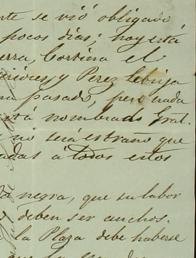 nte se vió obligado
pocos dias; hoy está
erra, Cortina el
y Perez Lebrija
pasado, pero nada
está nombrado Gral.
ni será estraño que
a todos estos
negra, que su labor
deben ser anchos.
la Plaza debe haberse